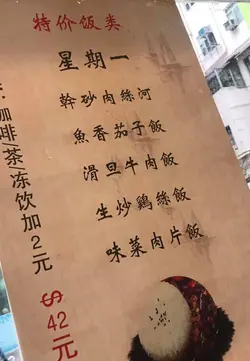 特价饭类
星期一
幹砂肉絲河
魚香茄子飯
滑旦牛肉飯
生炒鷄絲飯
味菜肉片飯
咖啡/茶/冻饮加2元
$42元